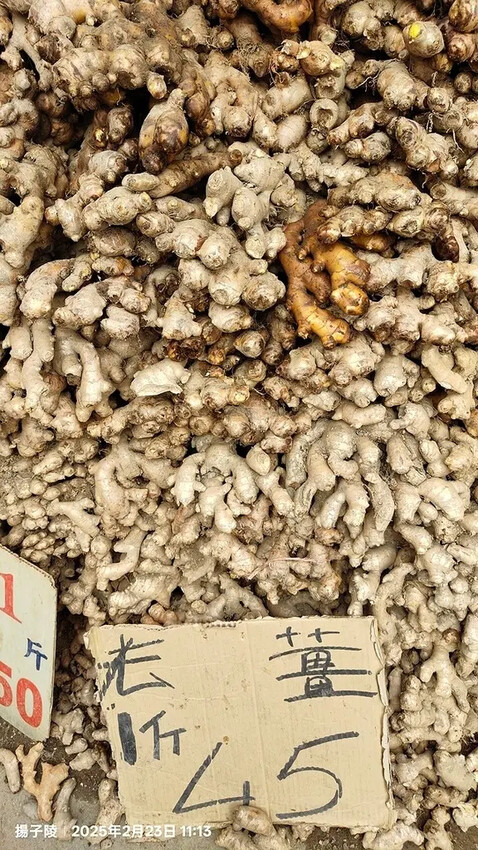 老薑
1斤 45
1
斤
50
揚子陵 | 2025年2月23日 11:13